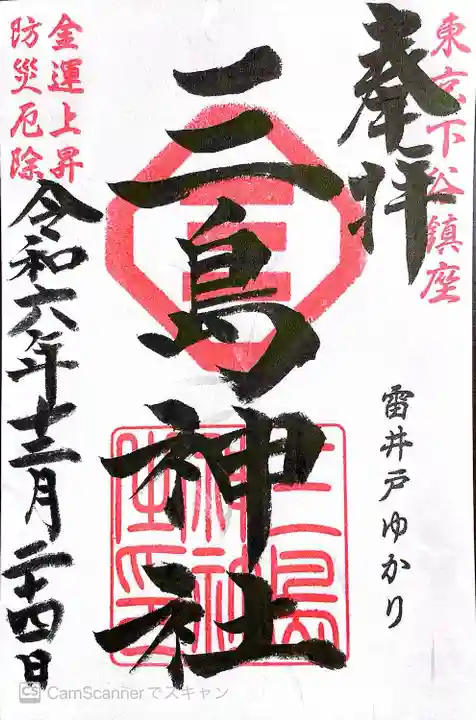 東京下谷鎮座
奉拝
雷井戸ゆかり
三島神社
三
三島
神社
金運上昇
防災厄除
令和六年十二月二十四日
CS CamScannerでスキャン